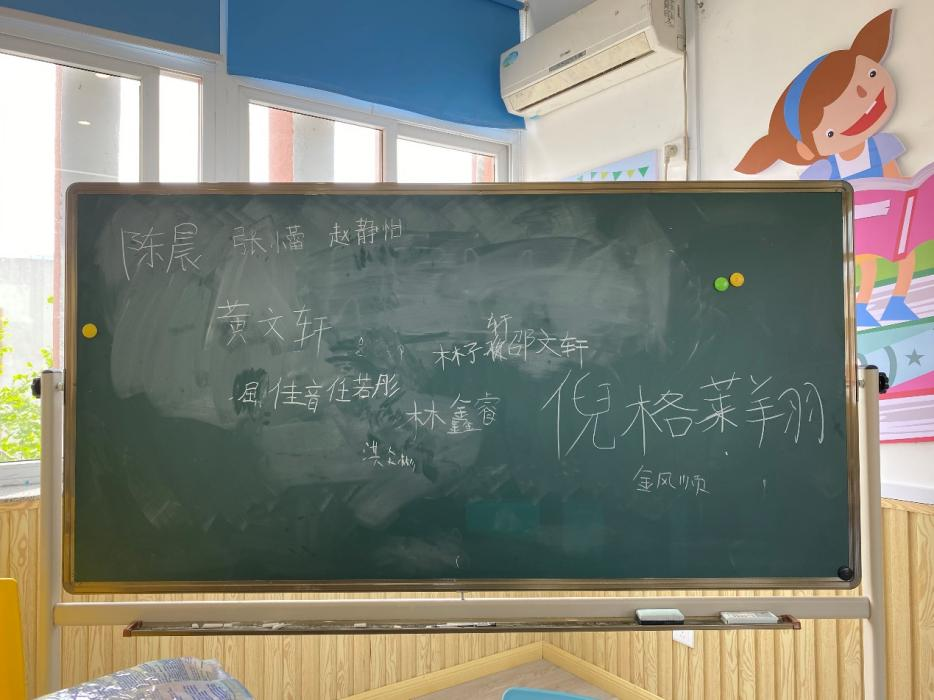 陈晨 张小蕾 赵静怡
黄文轩
林子轩 邵文轩
屈佳音 任若彤
林鑫睿
倪格莱翔
洪文彬
金风顺